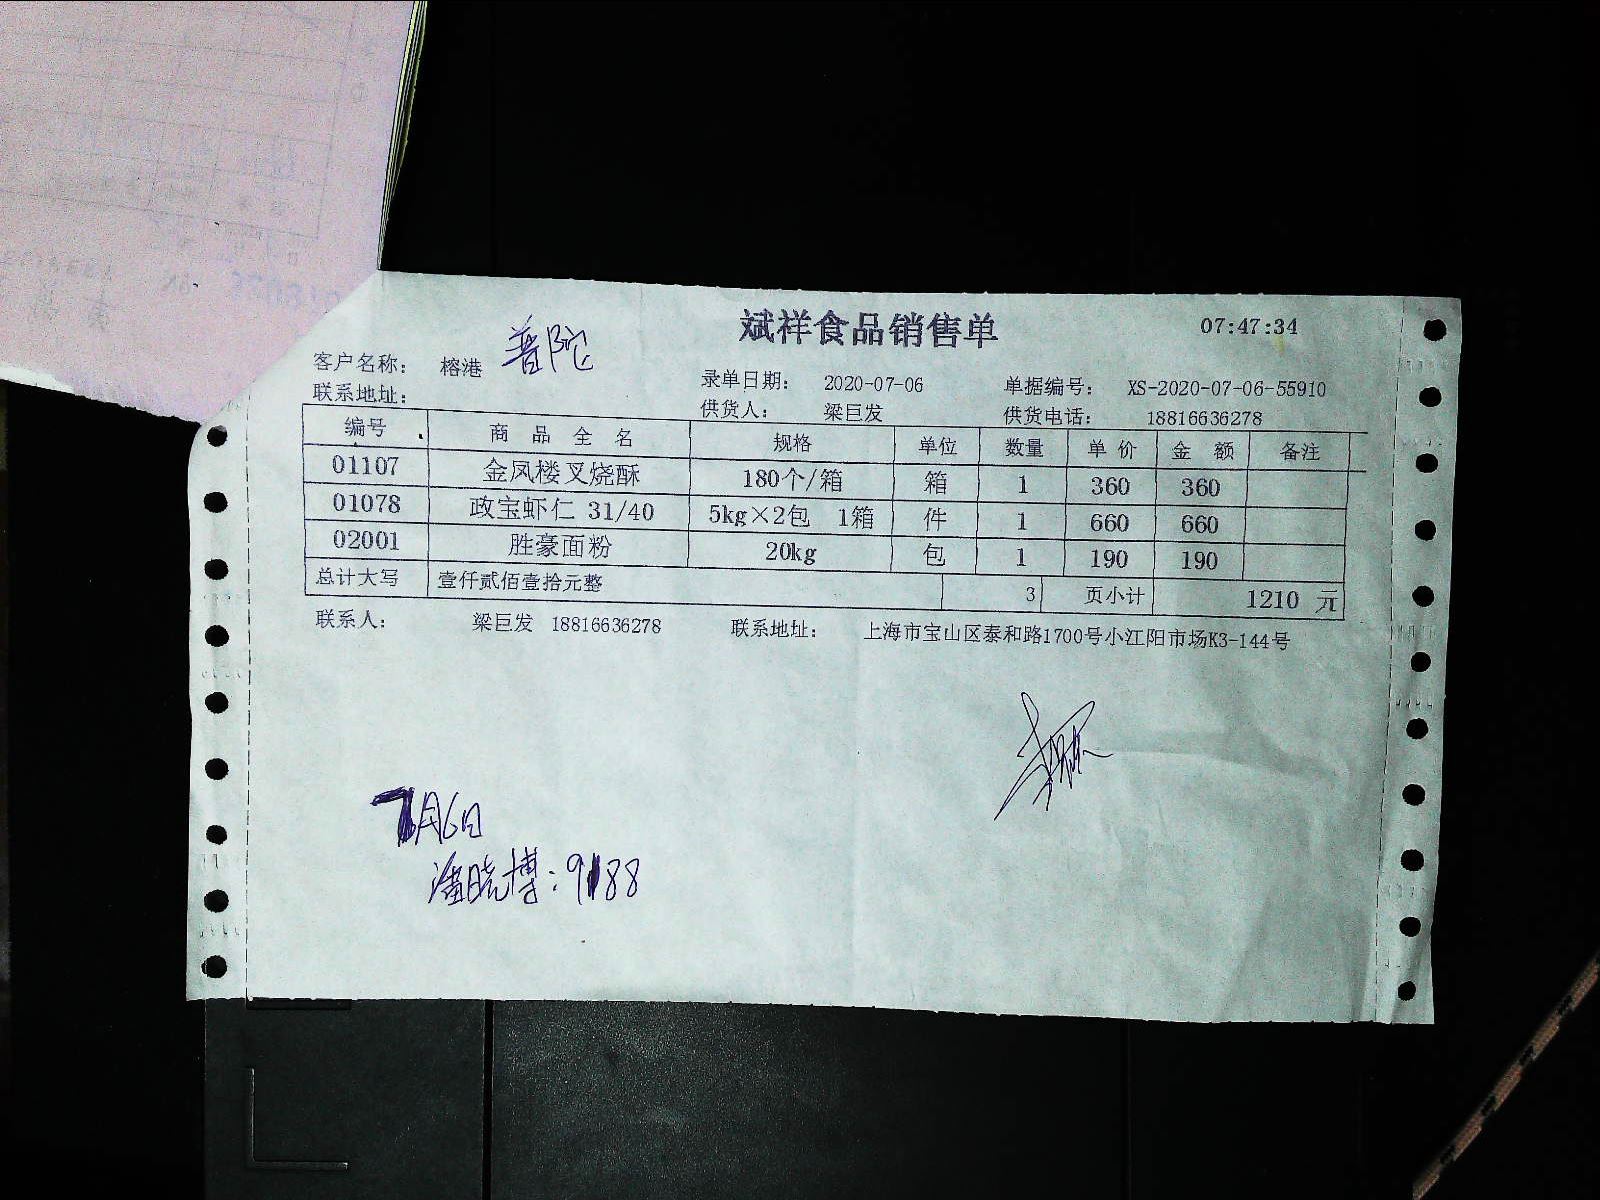 斌祥食品销售单 07:47:34
客户名称: 榕港 普陀
录单日期: 2020-07-06 单据编号: XS-2020-07-06-55910
联系地址:
供货人: 梁巨发 供货电话: 18816636278
编号 商品全名 规格 单位 数量 单价 金额 备注
01107 金凤楼叉烧酥 180个/箱 箱 1 360 360
01078 政宝虾仁 31/40 5kg×2包 1箱 件 1 660 660
02001 胜豪面粉 20kg 包 1 190 190
总计大写 壹仟贰佰壹拾元整 3 页小计 1210 元
联系人: 梁巨发 18816636278 联系地址: 上海市宝山区泰和路1700号小江阳市场K3-144号
7月6日
潘晓博:9188